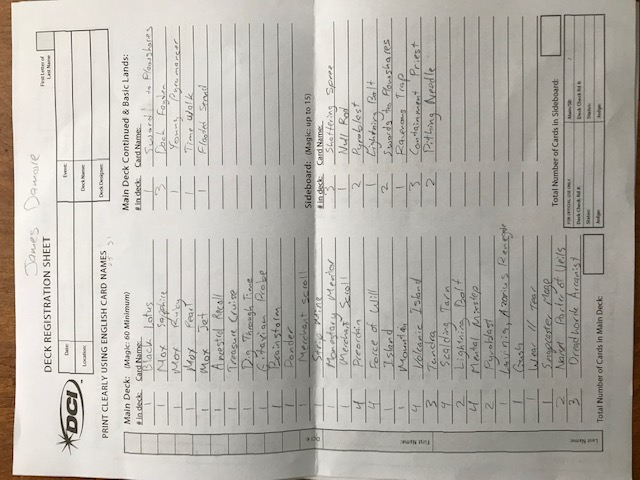 James Damore
DECK REGISTRATION SHEET
First Letter of
Last Name
DCI
Date:
Event:
Location:
Deck Name:
Deck Designer:
PRINT CLEARLY USING ENGLISH CARD NAMES
Main Deck: (Magic: 60 Minimum)
# in deck: Card Name:
1 Black Lotus
1 Mox Sapphire
1 Mox Ruby
1 Mox Pearl
1 Mox Jet
1 Ancestral Recall
1 Treasure Cruise
1 Dig Through Time
1 Gitaxian Probe
1 Brainstorm
1 Ponder
1 Merchant scroll
1 Strip Mine
1 Monastary Mentor
1 Merchant Scroll
4 Preordain
4 Force of Will
1 Island
1 Mountain
4 Volcanic Island
3 Tundra
4 Scalding Tarn
2 Lightning Bolt
4 Mental Misstep
2 Pyroblast
1 Lavinia, Azorius Renegade
1 Gush
1 Wear // Tear
1 Snapcaster Mage
2 Narset Parter of Veils
3 Dreadhorde Arcanist
Total Number of Cards in Main Deck:
Main Deck Continued & Basic Lands:
# in deck: Card Name:
1 Swords to Plowshares
3 Dack Fayden
1 Young Pyromancer
1 Time Walk
1 Flooded Strand
Sideboard: (Magic: up to 15)
# in deck: Card Name:
3 Shattering Spree
1 Null Rod
2 Pyroblast
1 Lightning Bolt
2 Swords to Plowshares
1 Ravenous Trap
3 Containment Priest
2 Pithing Needle
Total Number of Cards in Sideboard:
FOR OFFICIAL USE ONLY
Main/SB: /
Deck Check Rd #:
Deck Check Rd #:
Status:
Status:
Judge:
Judge:
DCI #:
First Name:
Last Name: